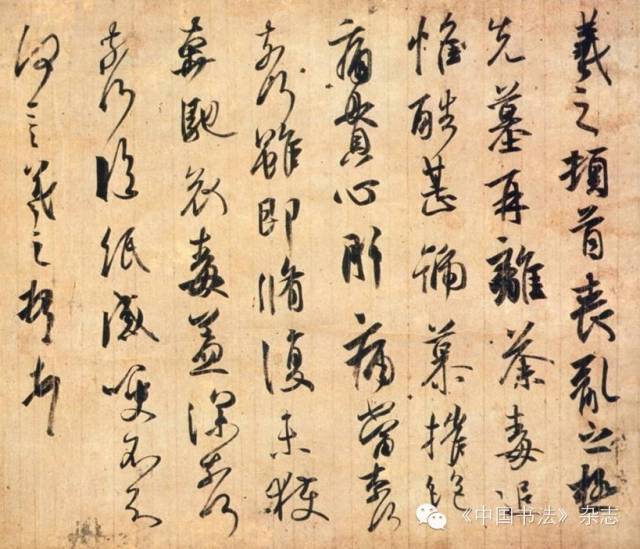 羲之頓首喪亂之極
先墓再離荼毒追
惟酷甚號慕摧絶
痛貫心肝痛當奈何
奈何雖即脩復未獲
奔馳哀毒益深奈何
奈何臨紙感哽不知
何言羲之頓首頓首
《中国书法》杂志